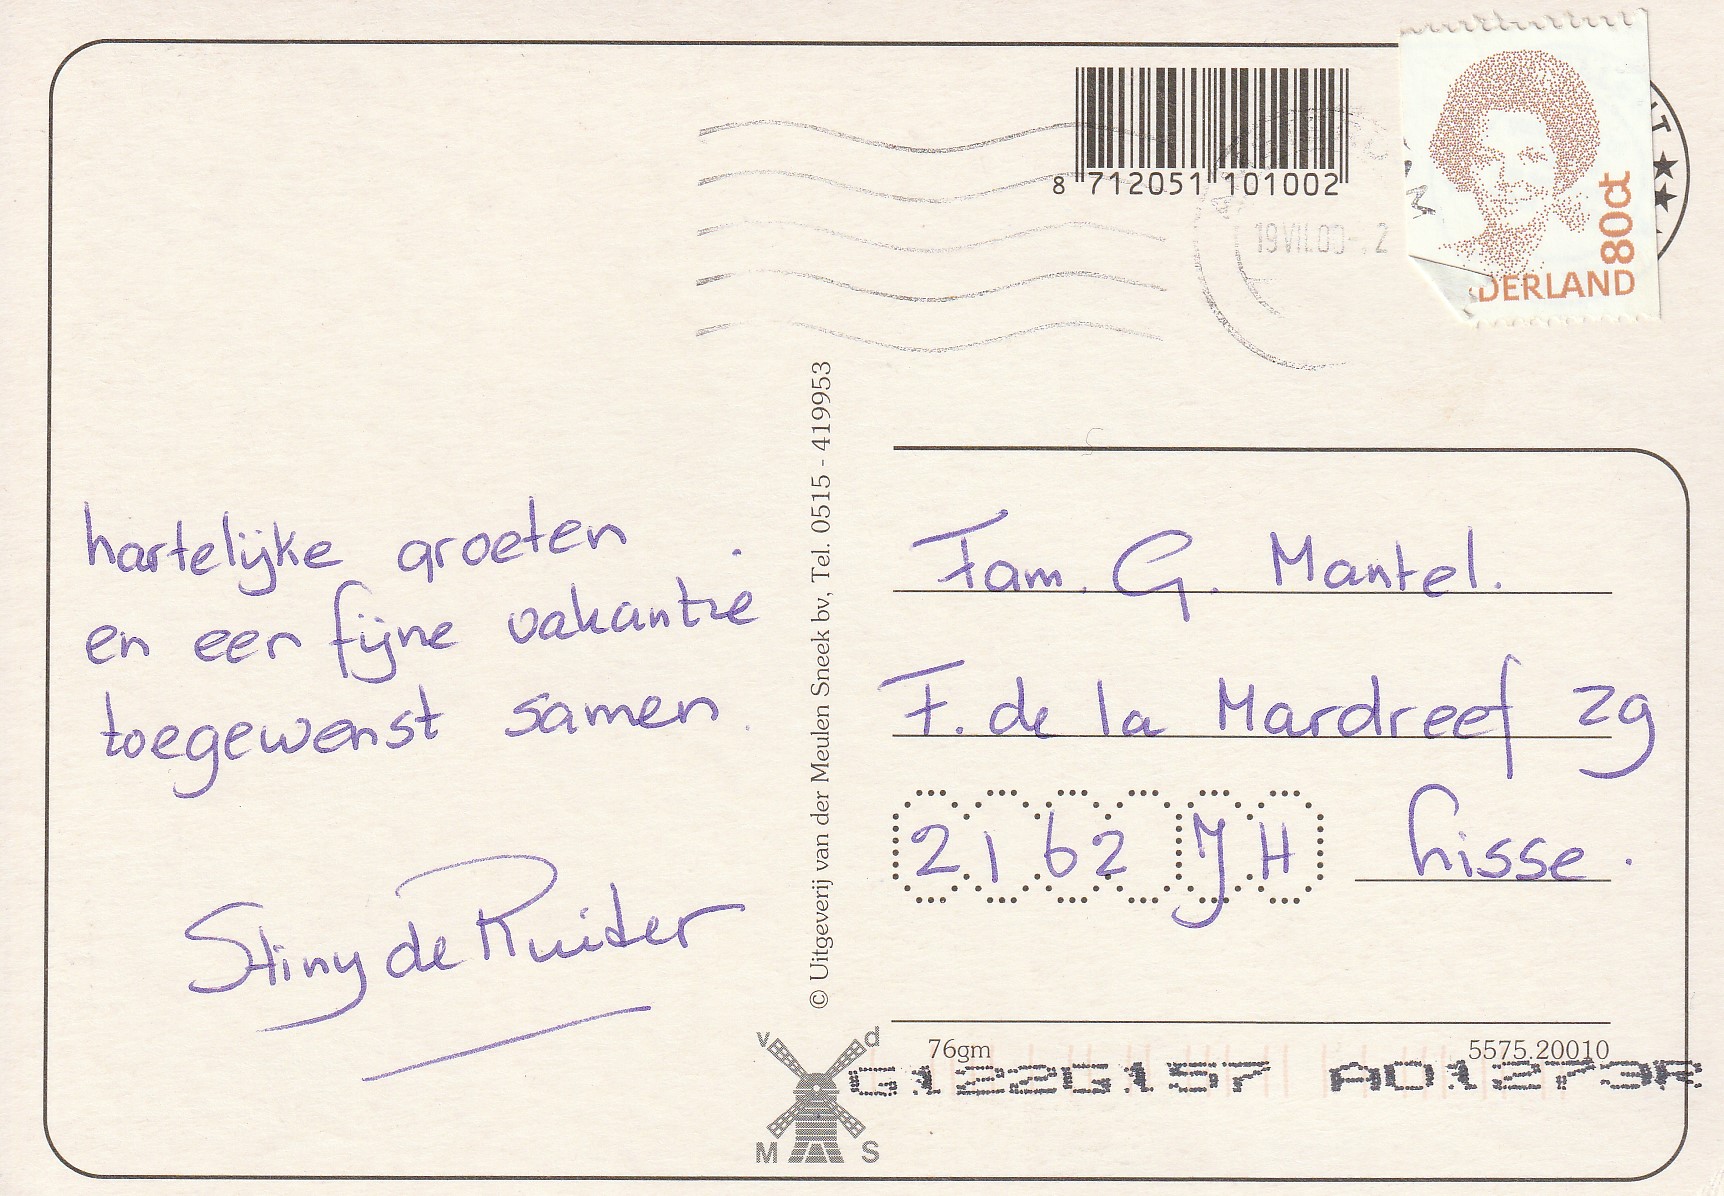 hartelijke groeten
en een fijne vakantie
toegewenst samen.
Stiny de Ruiter
© Uitgeverij van der Meulen Sneek bv, Tel. 0515 - 419953
8 712051 101002
19 VII.00 - 2
80ct
DERLAND
Fam. G. Mantel.
F. de la Mardreef 29
2162 JH Lisse.
76gm
5575.20010
v d
M S